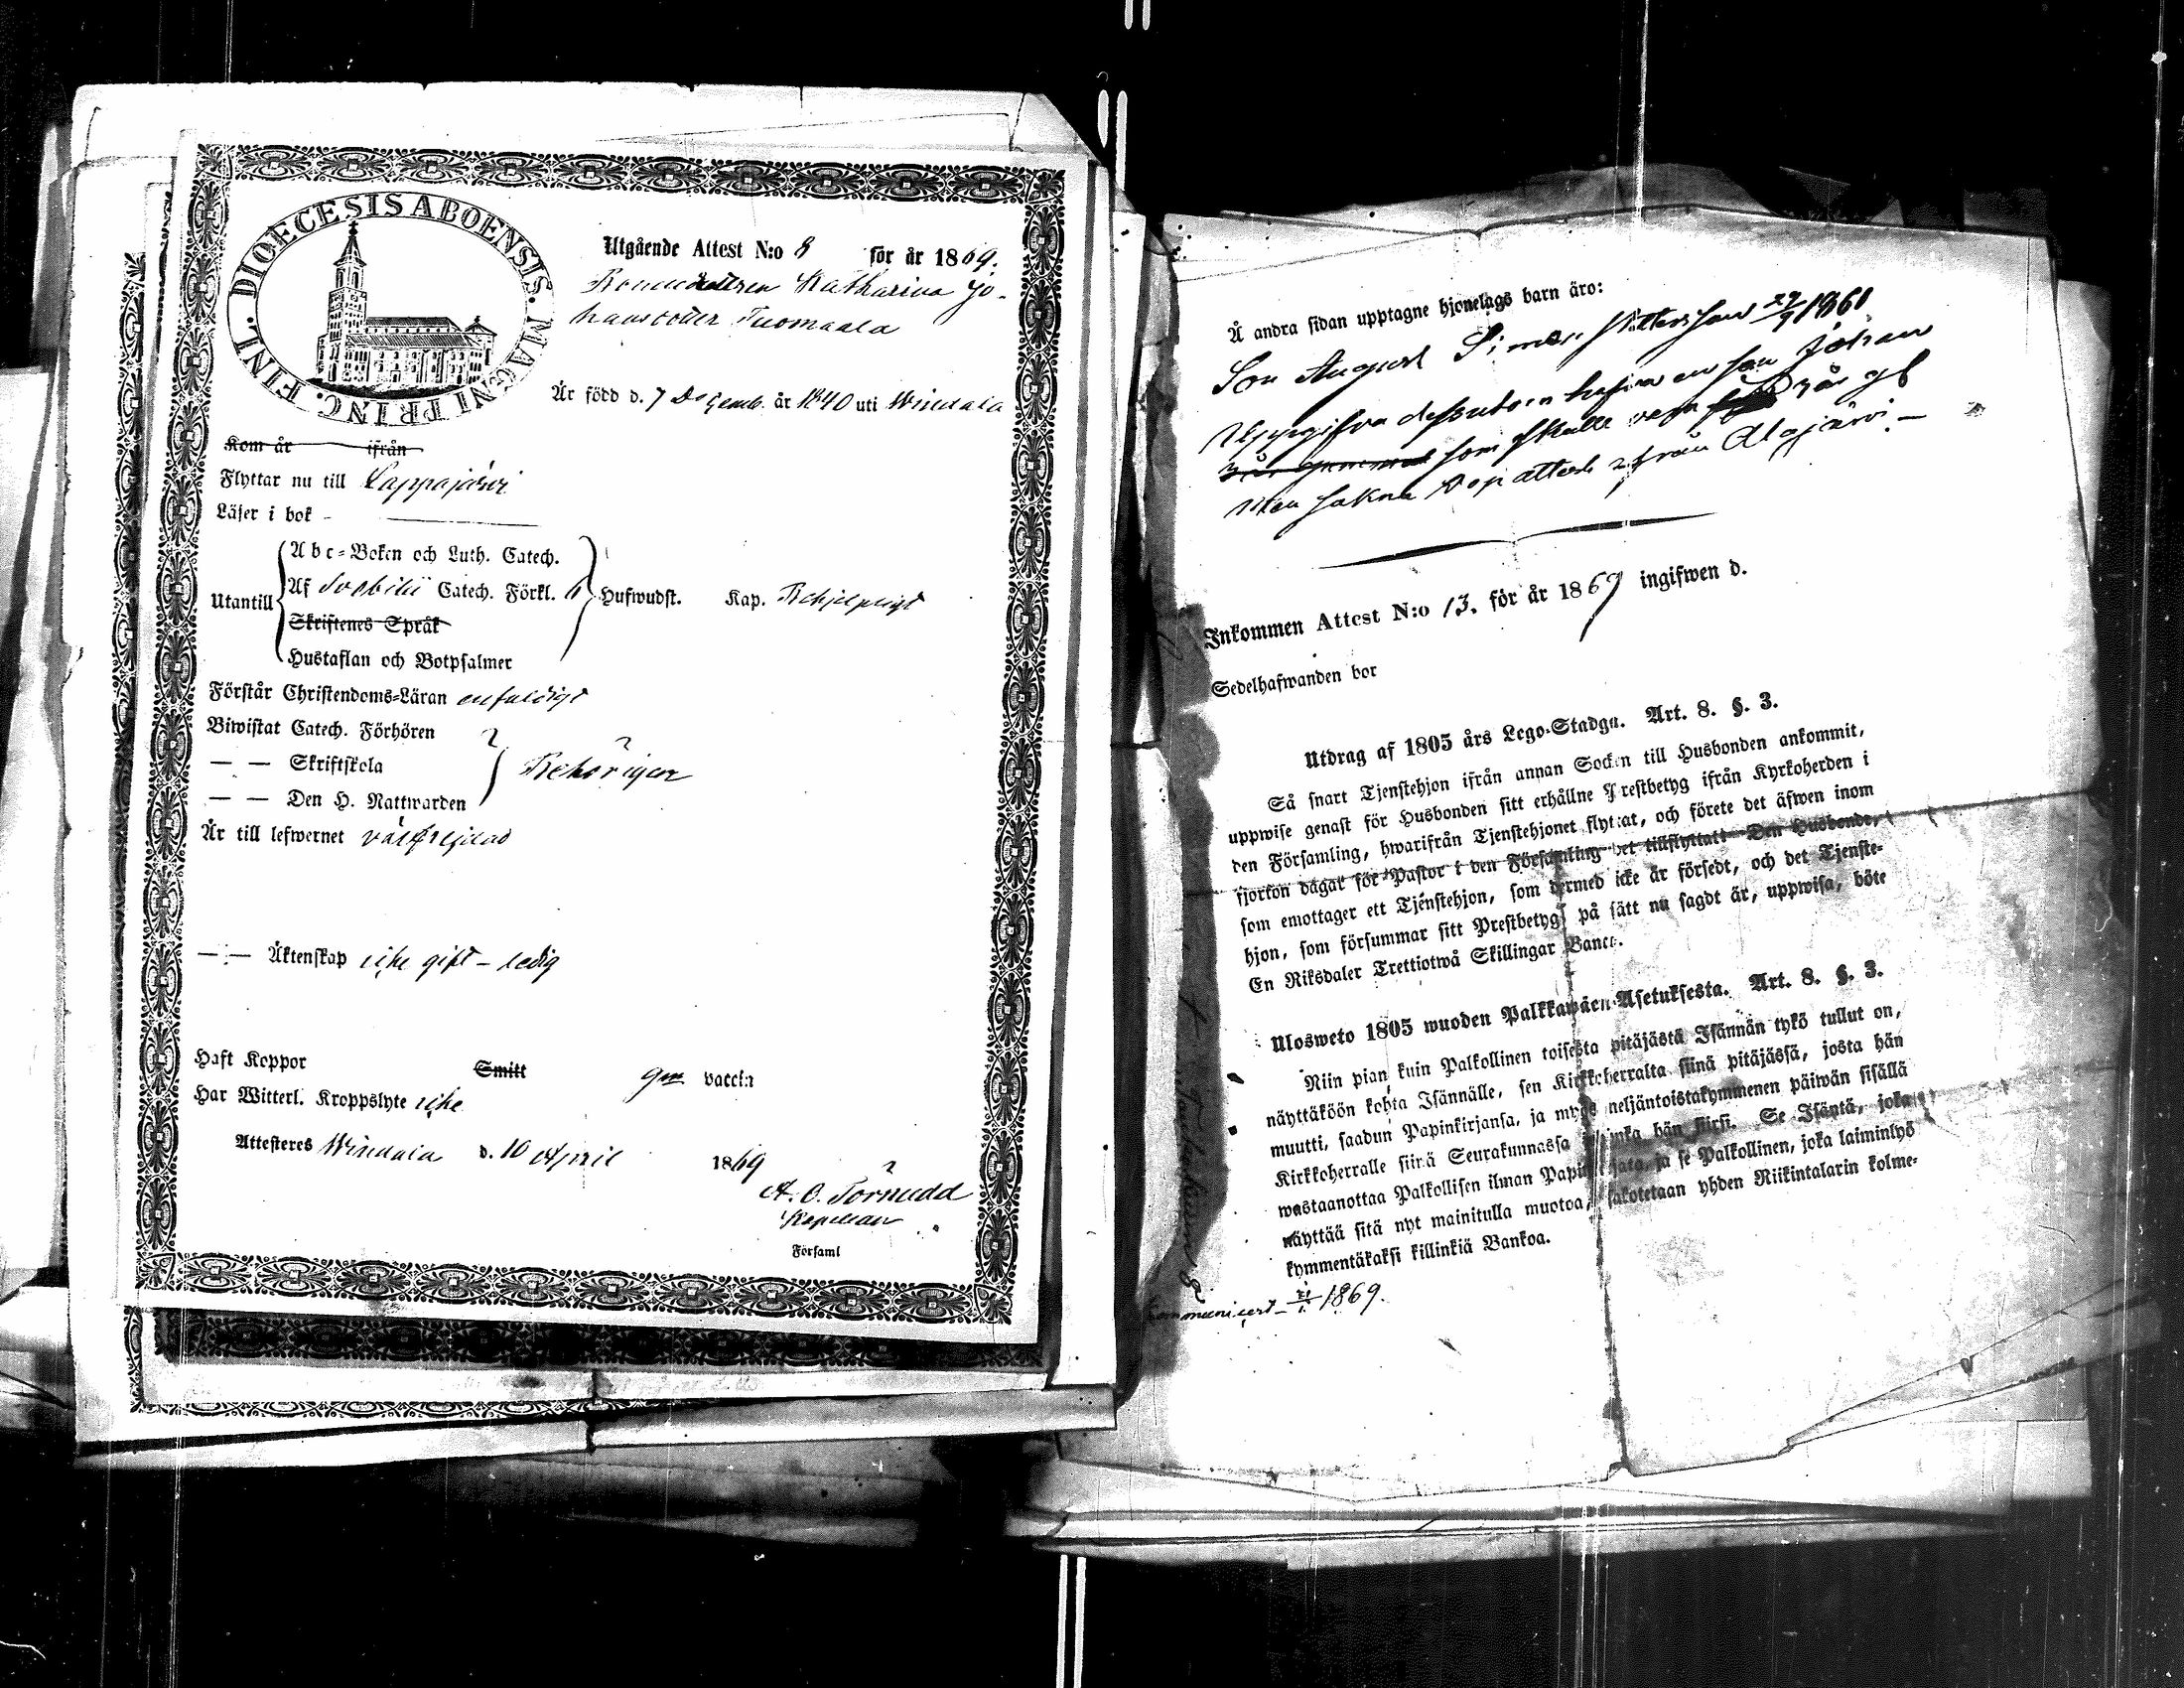 DIOECESIS ABOENSIS. MAGNI PRINC. FINL.
Utgående Attest N:o 8 för år 1869.
Bondedottren Katharina Jo-
hansdotter Tuomaala
Är född d. 7 Decemb. år 1840 uti Windala
Kom år ifrån
Flyttar nu till Lappajärvi
Läser i bok -
Utantill
Abc-Boken och Luth. Catech.
Af Svebilii Catech. Förkl. 6 Hufwudst. Kap. Behjelpligt
Skriftenes Språk
Hustaflan och Botpsalmer
Förstår Christendoms-Läran enfaldigt
Biwistat Catech. Förhören
— — Skriftskola Behörigen
— — Den H. Nattwarden
Är till lefwernet välfrejdad
— — Äktenskap icke gift - ledig
Haft Koppor Smitt gm vaccin
Har Witterl. Kroppslyte icke
Attesteres Windala d. 10 April 1869
A. O. Tornudd
Kapellan
Församl
Å andra sidan upptagne hjonelags barn äro:
Son August Simon 27/9 1861
en son Johan
som skulle vara år gl
Men sakna attest ifrån Alajärvi. —
Inkommen Attest N:o 13. för år 1869 ingifwen d.
Sedelhafwanden bor
Utdrag af 1805 års Lego-Stadga. Art. 8. §. 3.
Så snart Tjenstehjon ifrån annan Socken till Husbonden ankommit,
uppwise genast för Husbonden sitt erhållne Prestbetyg ifrån Kyrkoherden i
den Församling, hwarifrån Tjenstehjonet flyttat, och förete det äfwen inom
fjorton dagar för Pastor i den Församling det tillflyttat: Den Husbonde,
som emottager ett Tjenstehjon, som dermed icke är försedt, och det Tjenste-
hjon, som försummar sitt Prestbetyg på sätt nu sagdt är, uppwisa, böte
En Riksdaler Trettiotwå Skillingar Banco.
Ulosweto 1805 wuoden Palkkawäen Asetuksesta. Art. 8. §. 3.
Niin pian kuin Palkollinen toisesta pitäjästä Isännän tykö tullut on,
näyttäköön kohta Isännälle, sen Kirkkoherralta siinä pitäjässä, josta hän
muutti, saadun Papinkirjansa, ja myös neljäntoistakymmenen päiwän sisällä
Kirkkoherralle siinä Seurakunnassa johonka hän siirsi. Se Isäntä, joka
wastaanottaa Palkollisen ilman Papinkirjata, ja se Palkollinen, joka laiminlyö
näyttää sitä nyt mainitulla muotoa, sakotetaan yhden Riikintalarin kolme-
kymmentäkaksi killinkiä Bankoa.
1869.